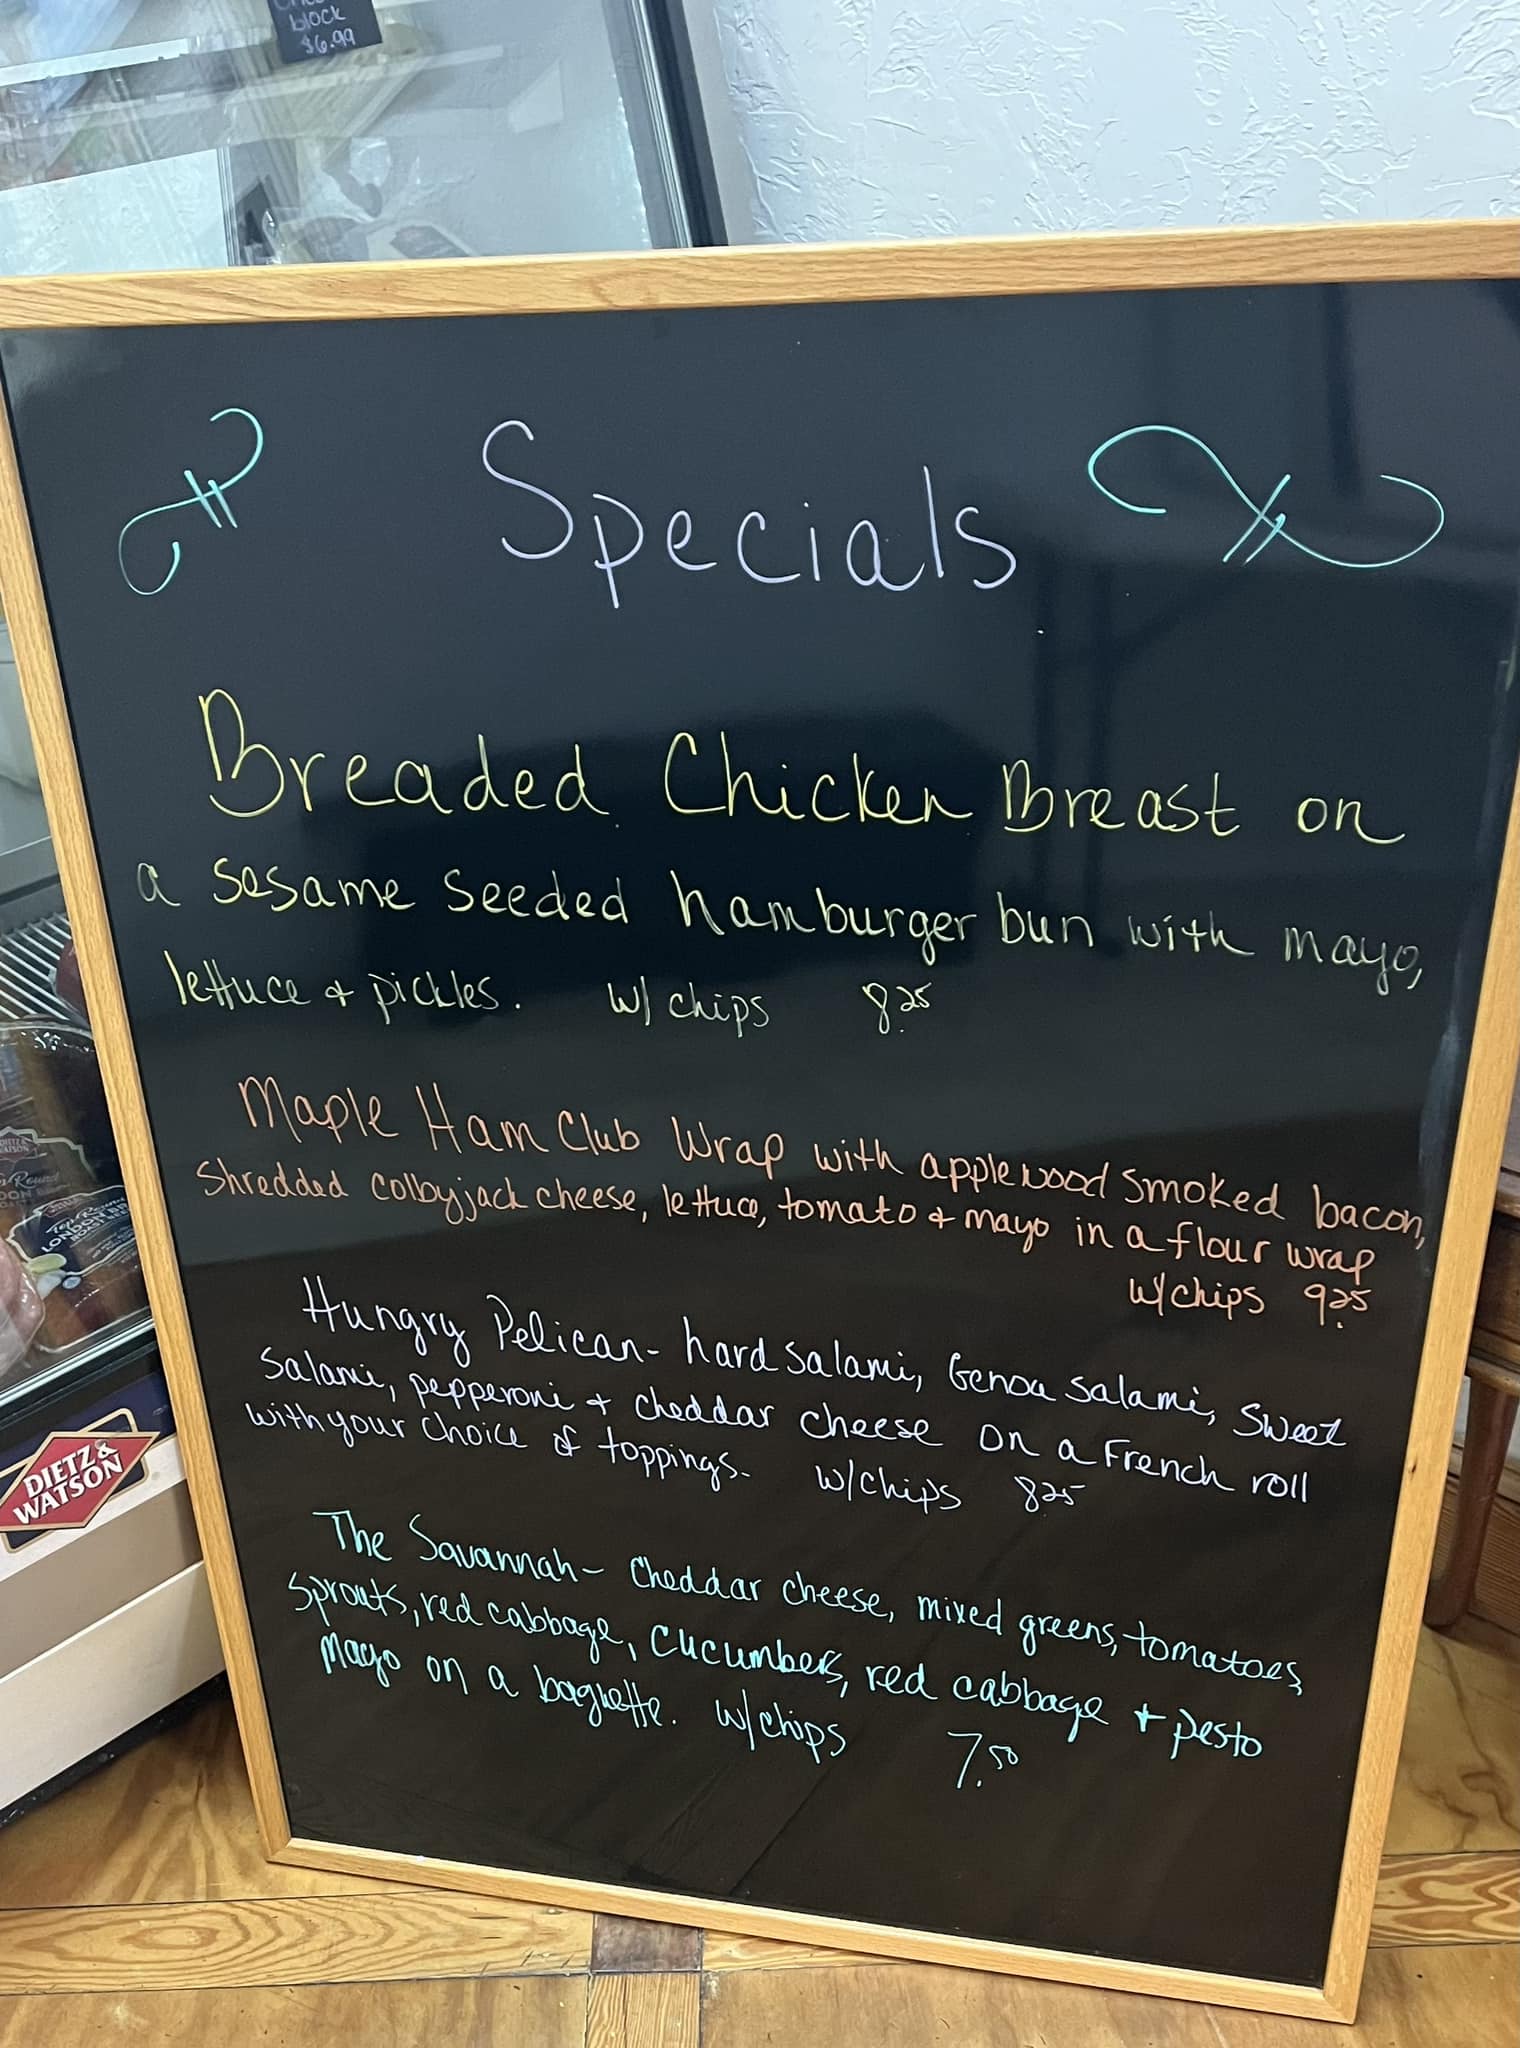 block
$6.99
Specials
Breaded Chicken Breast on
a sesame seeded hamburger bun with mayo,
lettuce + pickles. w/ chips 8.25
Maple Ham Club Wrap with applewood smoked bacon,
Shredded colbyjack cheese, lettuce, tomato + mayo in a flour wrap
w/chips 9.25
Hungry Pelican- hard salami, Genoa salami, sweet
Salami, pepperoni + cheddar cheese on a French roll
with your choice of toppings. w/chips 8.25
The Savannah- Cheddar cheese, mixed greens, tomatoes,
Sprouts, red cabbage, cucumbers, red cabbage + pesto
Mayo on a baguette. w/chips 7.50
DIETZ &
WATSON